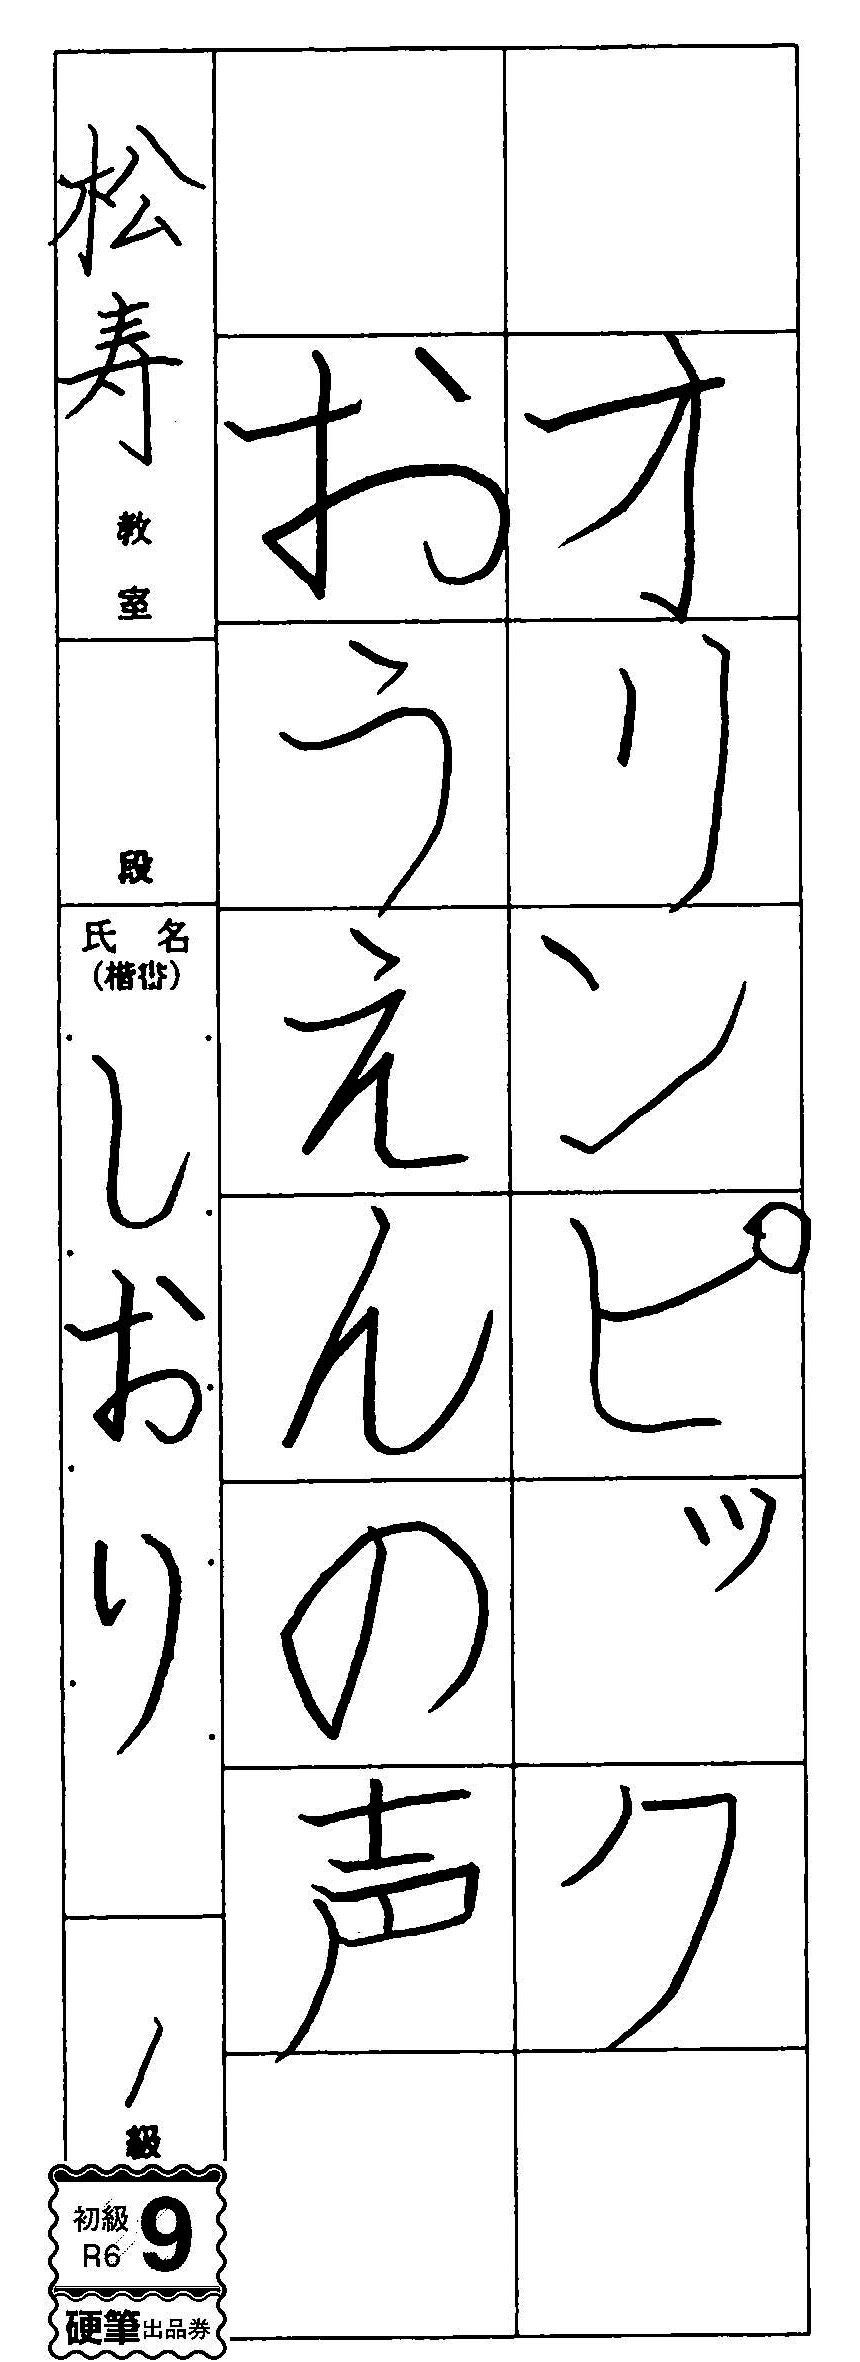 オリンピック
おうえんの声
松寿教室
段
氏名
しおり
1級
初級
R6
9
硬筆出品券